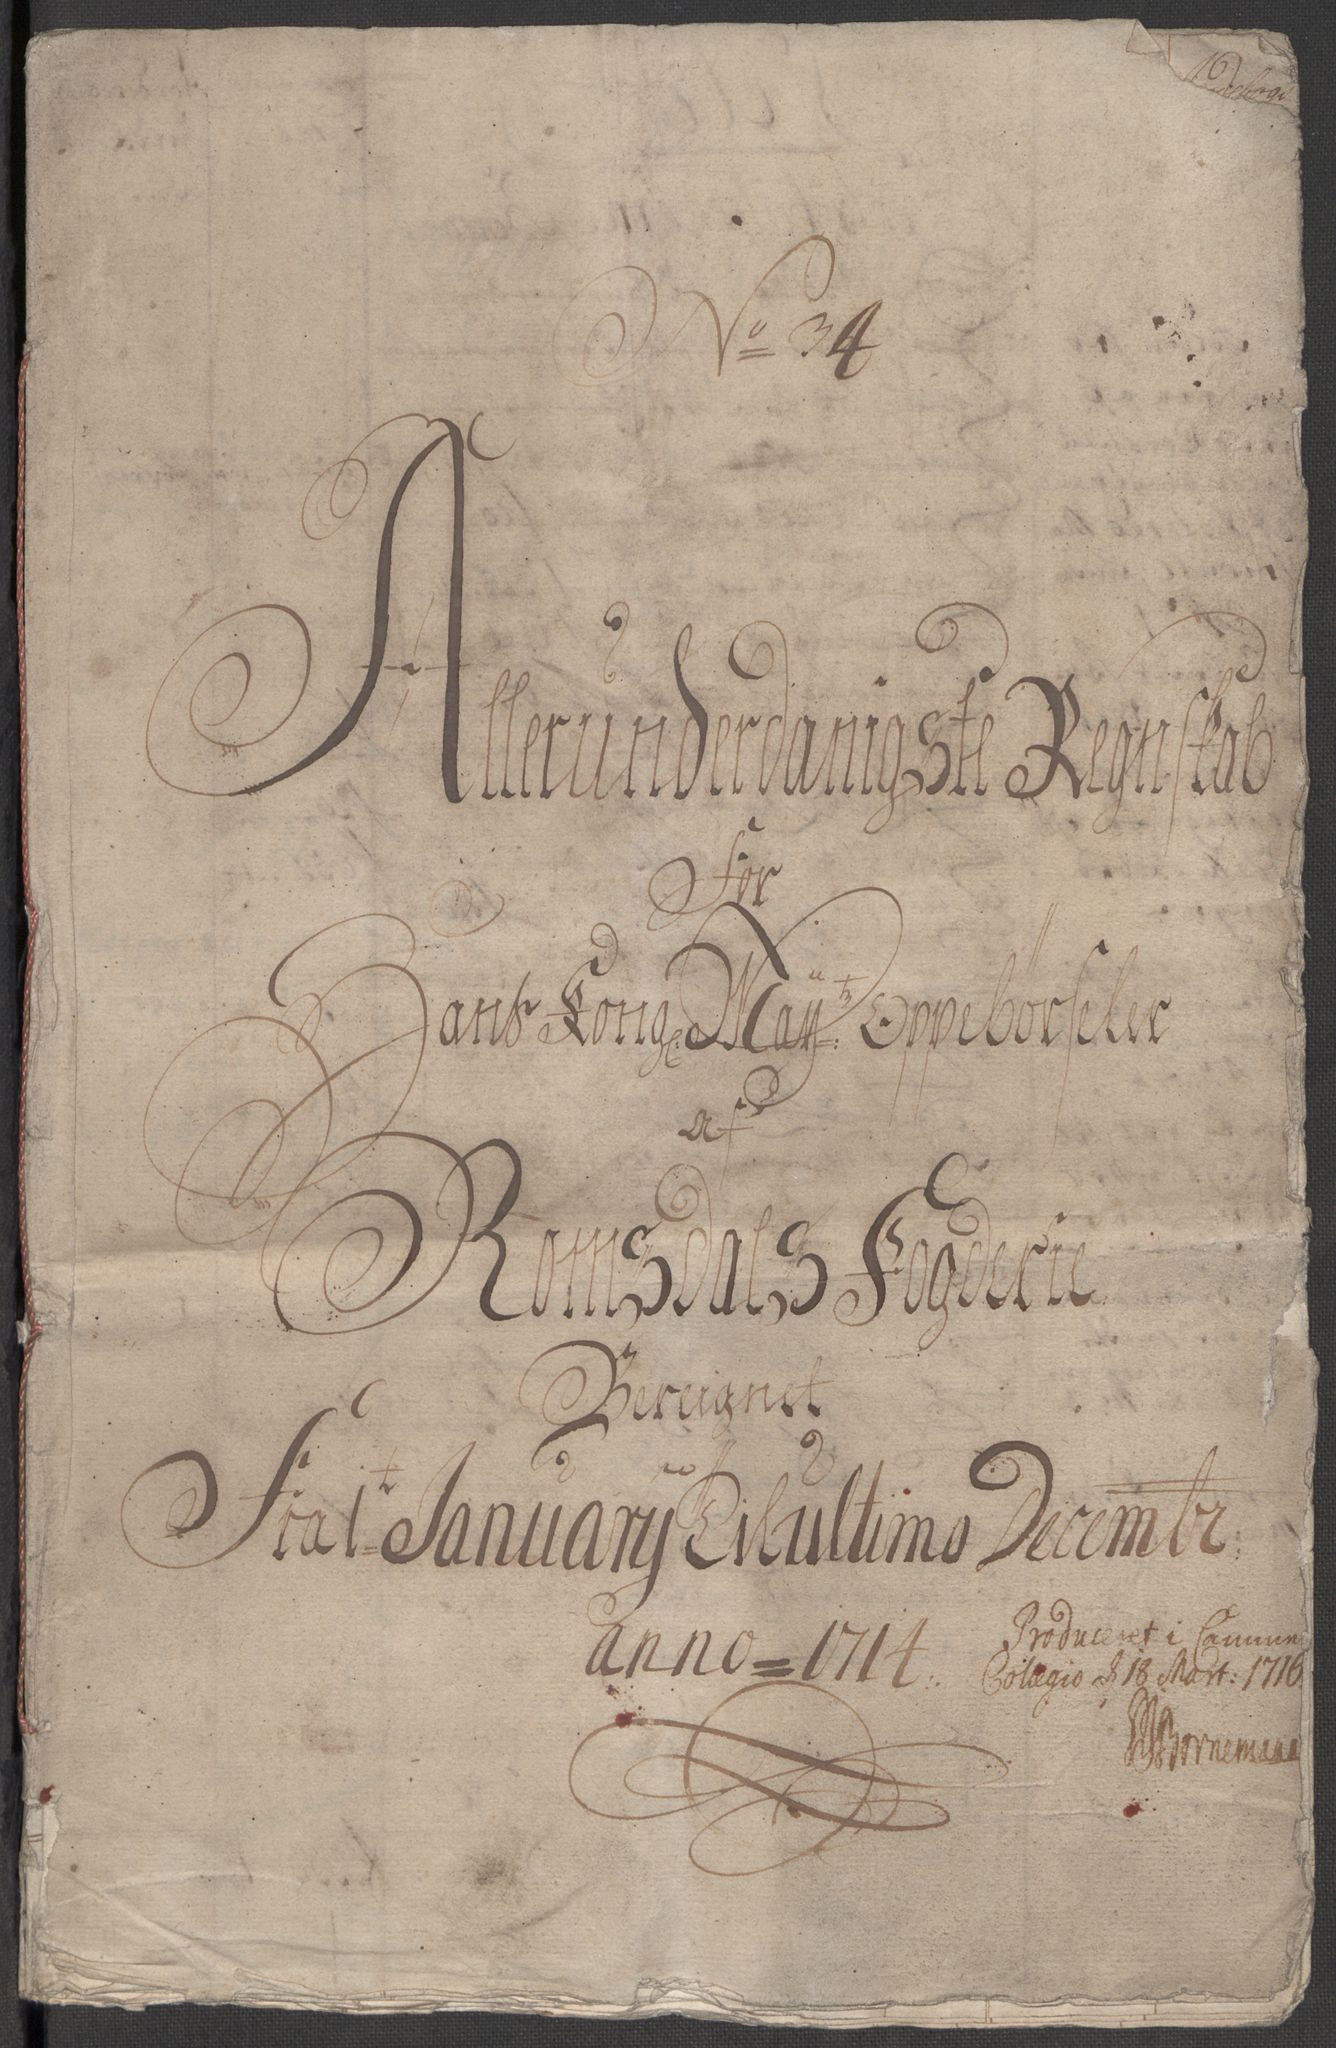 No 34
Allerunderdanigste Regnskab
for
Hans Kong: Mayts: Oppebörseler
af
Romsdals Fogderie
Bereignet
Fra 1t January Til ultimo Decembr:
anno = 1714.
Produceret i Cammer
Colegio d 18 Mart: 1716
Bornemann